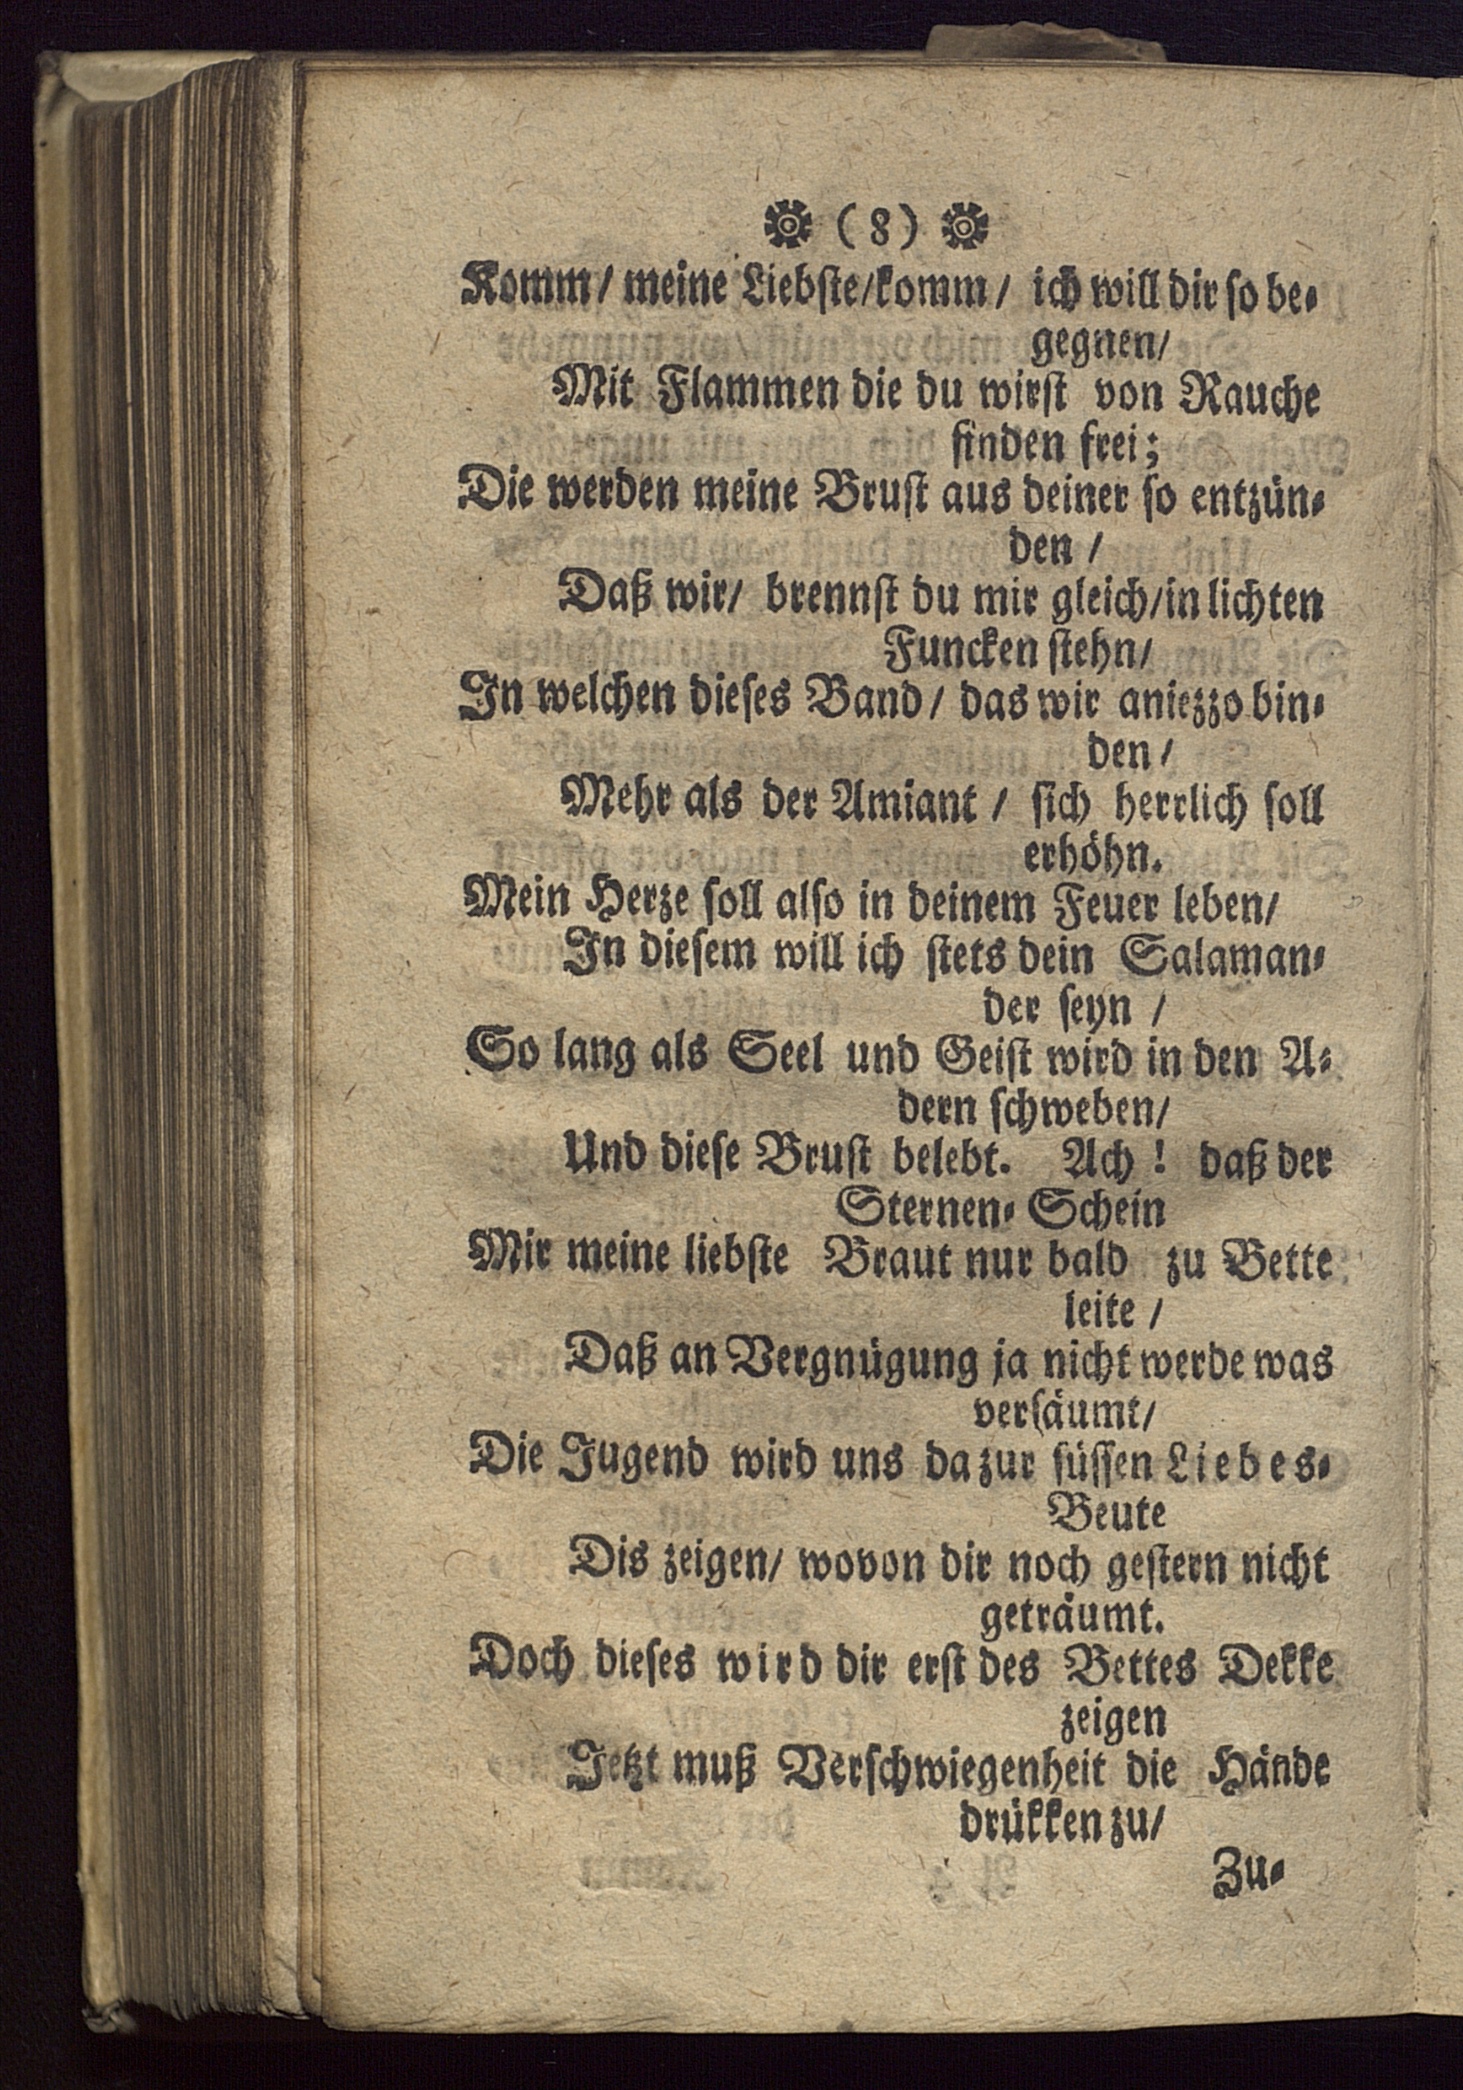 (8)
Komm/ meine Liebſte/komm/ ich will dir ſo be⸗
gegnen/
Mit Flammen die du wirſt von Rauche
finden frei;
Die werden meine Bruſt aus deiner ſo entzün⸗
den /
Daß wir/ brennſt du mir gleich/in lichten
Funcken ſtehn/
In welchen dieſes Band/ das wir aniezzo bin⸗
den/
Mehr als der Amiant / ſich herrlich ſoll
erhöhn.
Mein Herze ſoll alſo in deinem Feuer leben/
In dieſem will ich ſtets dein Salaman⸗
der ſeyn /
So lang als Seel und Geiſt wird in den A⸗
dern ſchweben/
Und dieſe Bruſt belebt. Ach ! daß der
Sternen⸗ Schein
Mir meine liebſte Braut nur bald zu Bette
leite /
Daß an Vergnügung ja nicht werde was
verſäumt/
Die Jugend wird uns da zur ſüſſen Liebes⸗
Beute
Dis zeigen/ wovon dir noch geſtern nicht
geträumt.
Doch dieſes wird dir erſt des Bettes Dekke
zeigen
Jetzt muß Verſchwiegenheit die Hände
drükken zu/
Zu⸗